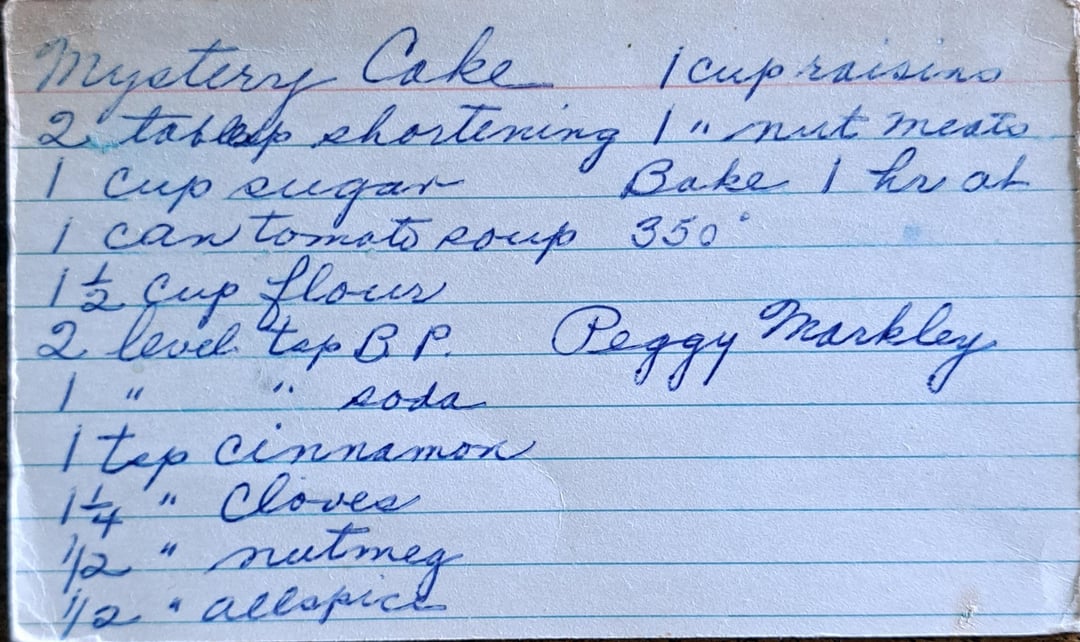 Mystery Cake
2 tablesp shortening
1 cup sugar
1 can tomato soup
1 1/2 cup flour
2 level tsp B.P.
1 " " soda
1 tsp cinnamon
1 1/4 " Cloves
1/2 " nutmeg
1/2 " allspice
1 cup raisins
1 " nut meats
Bake 1 hr at
350°
Peggy Markley